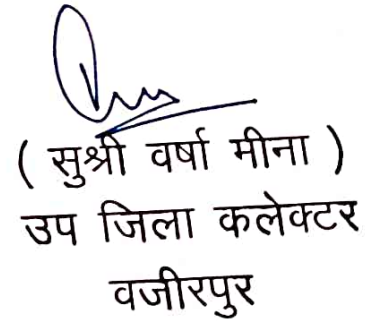 ( सुश्री वर्षा मीना )
उप जिला कलेक्टर
वजीरपुर